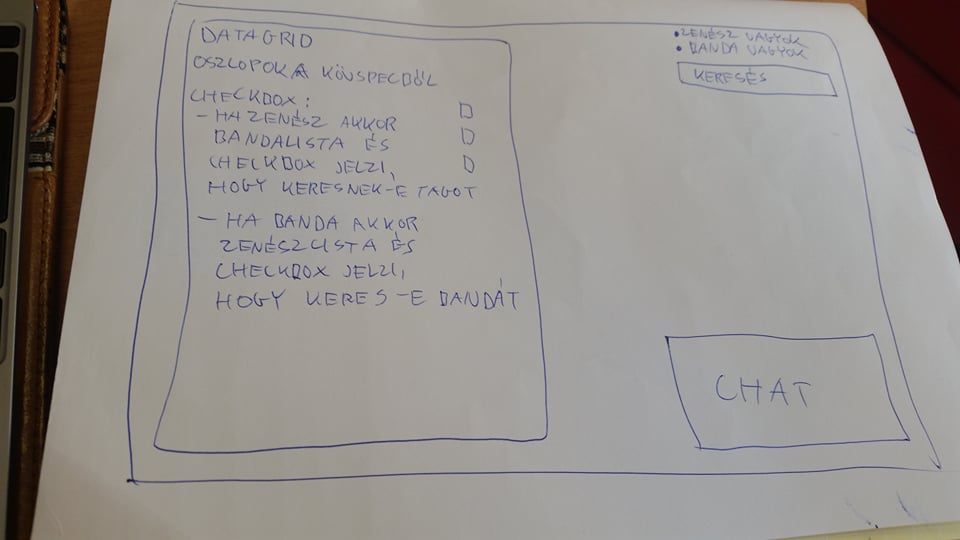 DATAGRID
OSZLOPOK A KÖVSPECBŐL
CHECKBOX:
- HA ZENÉSZ AKKOR
BANDALISTA ÉS
CHECKBOX JELZI,
HOGY KERESNEK-E TAGOT
- HA BANDA AKKOR
ZENÉSZLISTA ÉS
CHECKBOX JELZI,
HOGY KERES-E BANDÁT
• ZENÉSZ VAGYOK
• BANDA VAGYOK
KERESÉS
CHAT